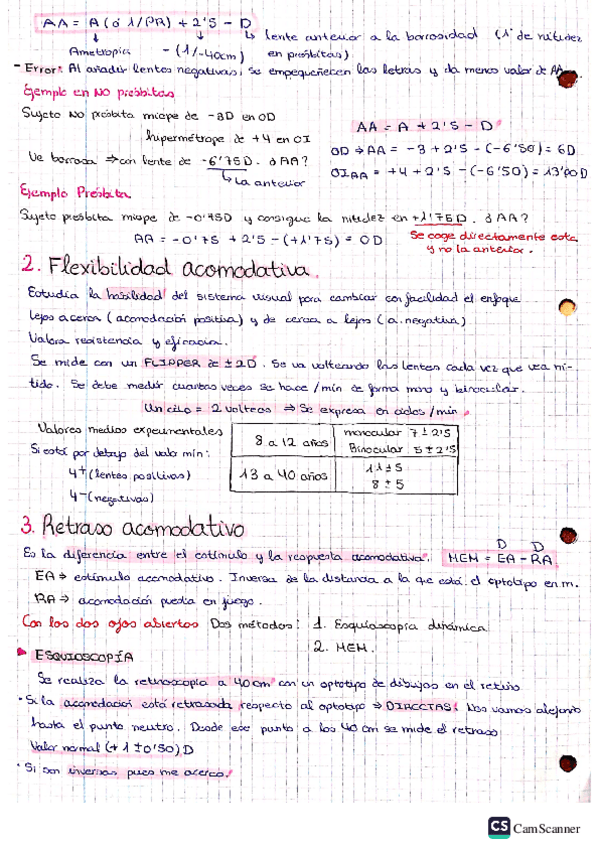 AA = A (ó 1/PR) + 2'5 - D
Ametropía
- (1/-40cm)
lente anterior a la borrosidad (1ª de nitidez
en présbitas)
- Error: Al añadir lentes negativas, se empequeñecen las letras y da menos valor de AA
Ejemplo en NO présbitas
Sujeto NO présbita miope de -3D en OD
hipermétrope de +4 en OI
Ve borroso ⇒ con lente de -6'75D. ¿AA?
La anterior
AA = A + 2'5 - D
OD ⇒ AA = -3 + 2'5 - (-6'50) = 6D
OI AA = +4 + 2'5 - (-6'50) = 13'00D
Ejemplo Présbita
Sujeto présbita miope de -0'75D y consigue la nitidez en +1'75D. ¿AA?
AA = -0'75 + 2'5 - (+1'75) = 0D
Se coge directamente esta
y no la anterior.
2. Flexibilidad acomodativa.
Estudia la habilidad del sistema visual para cambiar con facilidad el enfoque
lejos a cerca (acomodación positiva) y de cerca a lejos (a. negativa)
Valora resistencia y eficacia.
Se mide con un FLIPPER de ±2D. Se va volteando las lentes cada vez que vea ní-
tido. Se debe medir cuantas veces se hace /min de forma mono y binocular.
Un ciclo = 2 volteos ⇒ Se expresa en ciclos/min.
Valores medios experimentales
Si está por debajo del valor mín:
4+ (lentes positivas)
4- (negativas)
8 a 12 años
monocular 7 ± 2'5
Binocular 5 ± 2'5
13 a 40 años
11 ± 5
8 ± 5
3. Retraso acomodativo
Es la diferencia entre el estímulo y la respuesta acomodativa.
D D
MEM = EA - RA
EA ⇒ estímulo acomodativo. Inversa de la distancia a la que está el optotipo en m.
RA ⇒ acomodación puesta en juego.
Con los dos ojos abiertos Dos métodos: 1. Esquiascopía dinámica
2. MEM.
ESQUIOSCOPÍA
Se realiza la retinoscopía a 40cm con un optotipo de dibujos en el retino
· Si la acomodación está retrasada respecto al optotipo ⇒ DIRECTAS. Nos vamos alejando
hasta el punto neutro. Desde ese punto a los 40 cm se mide el retraso
Valor normal (+1 ± 0'50) D
· Si son inversas pues me acerco.
CS CamScanner